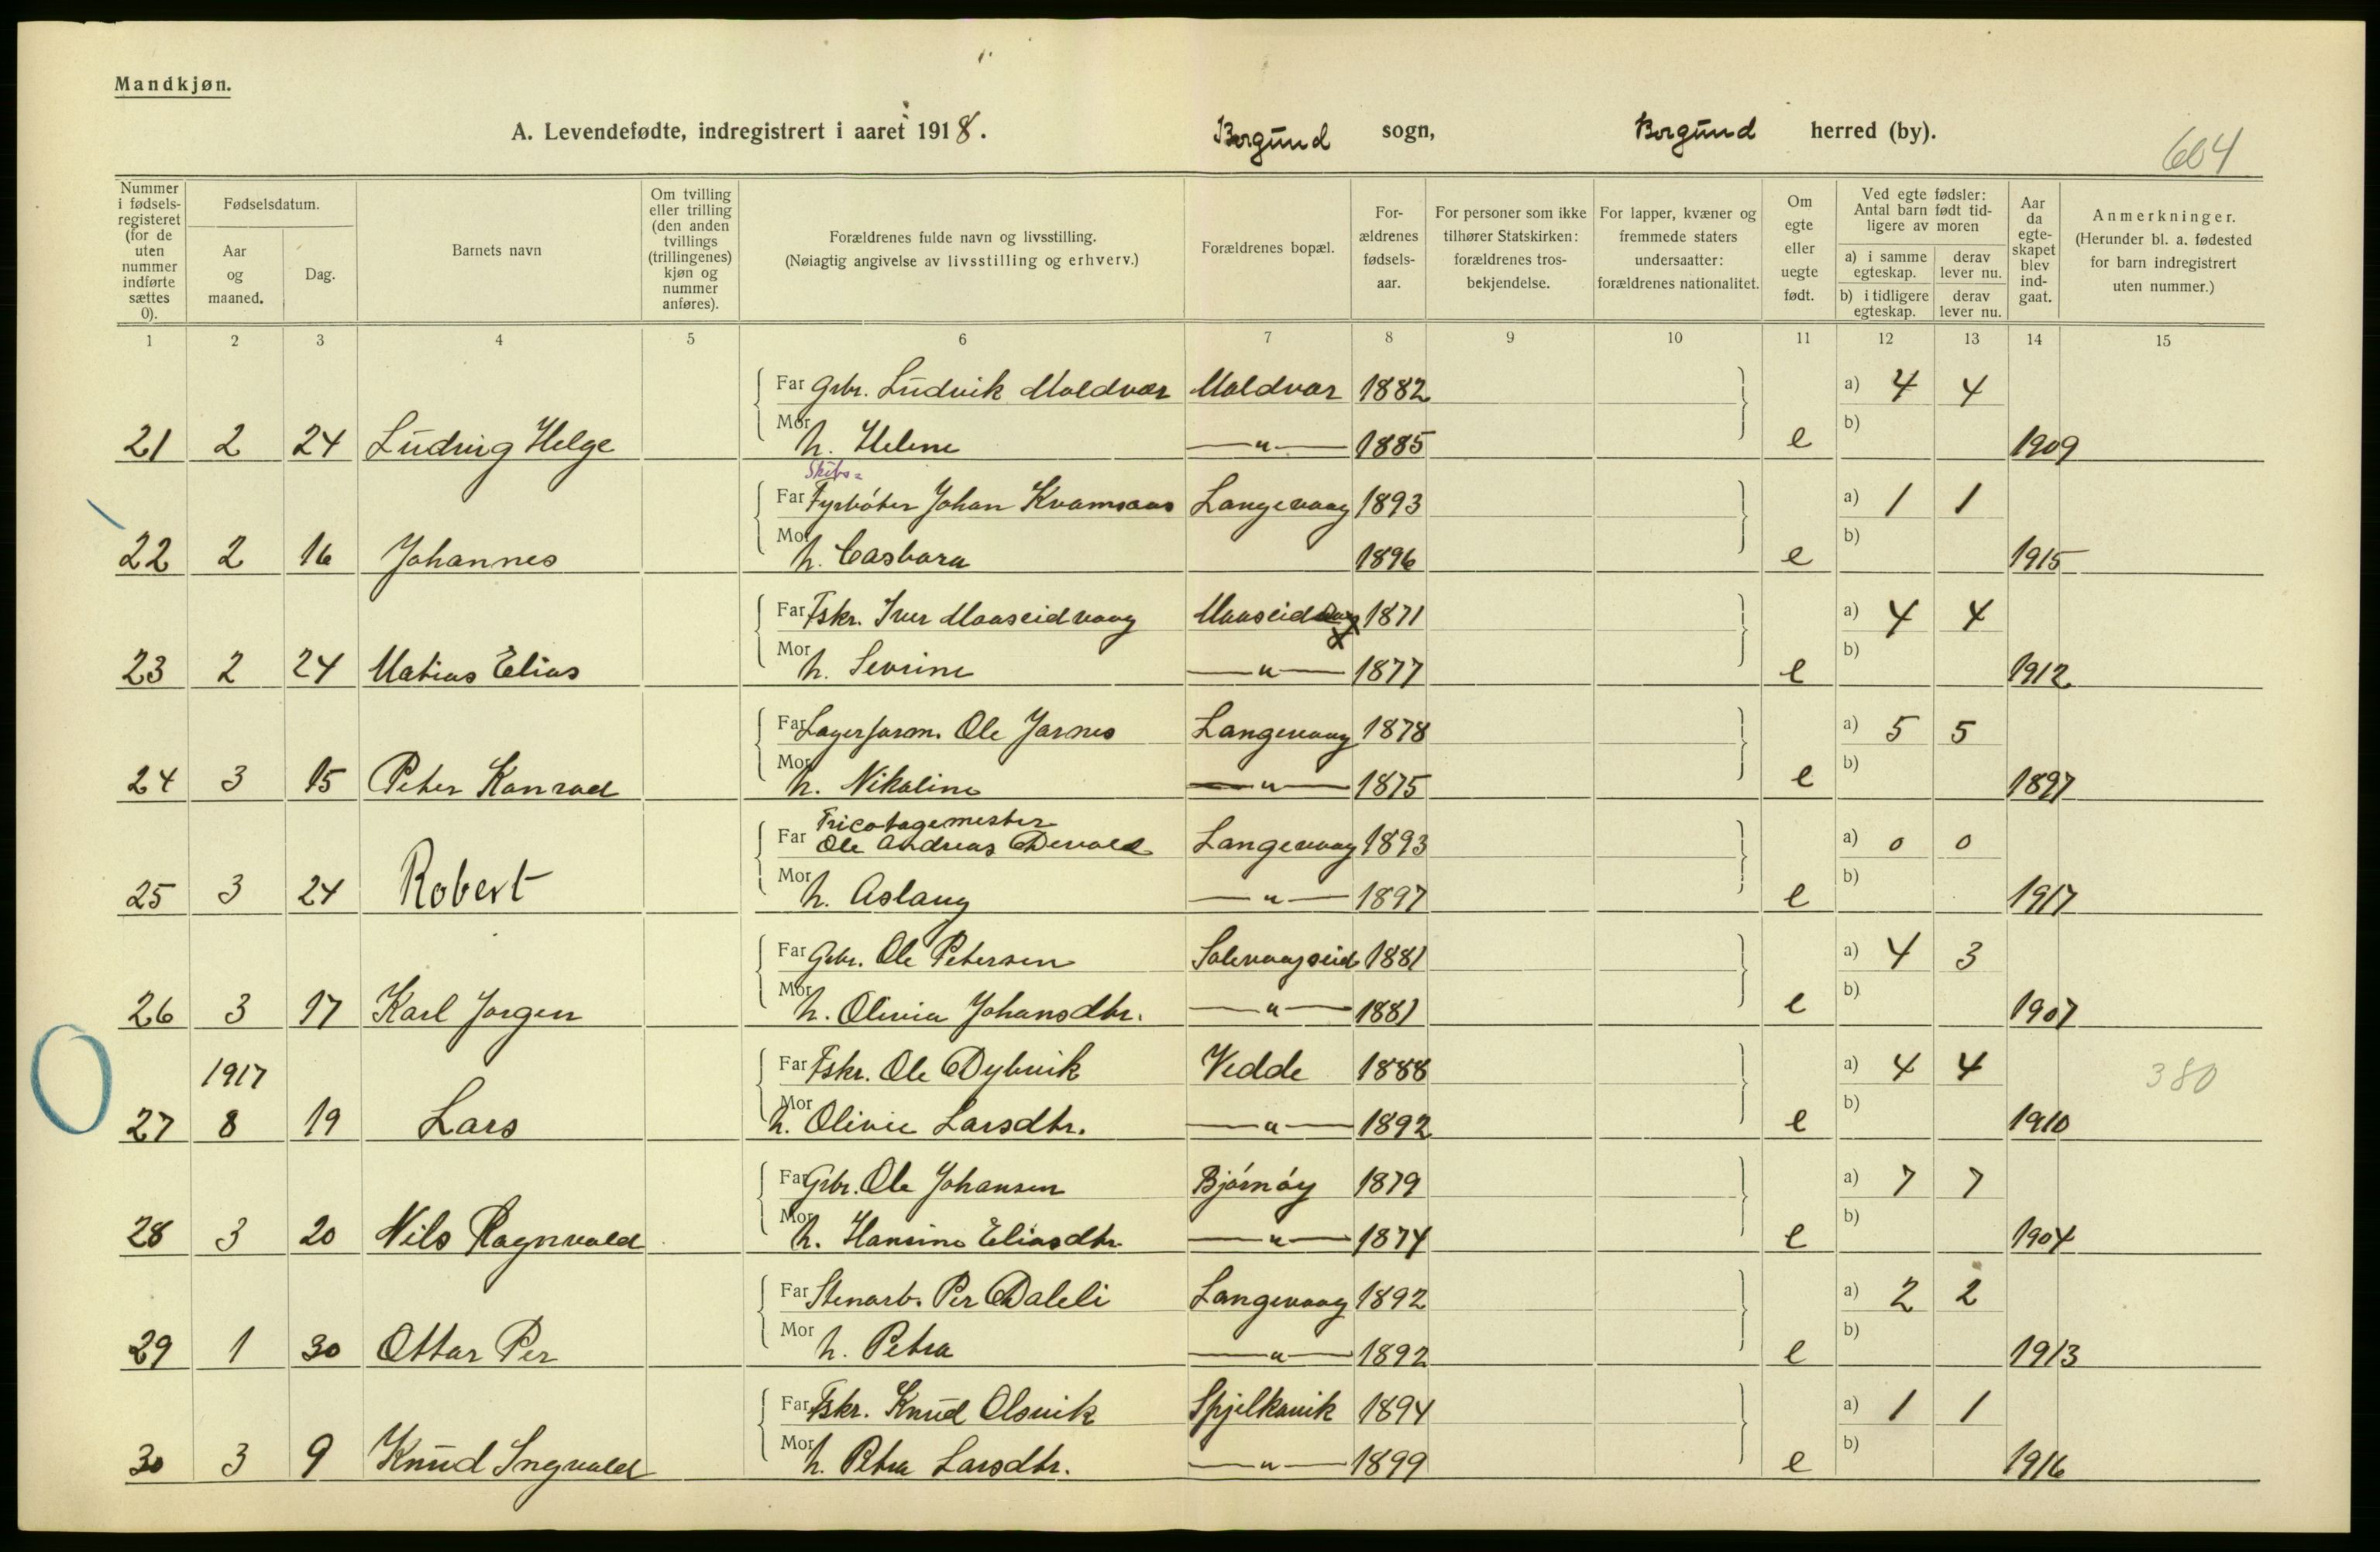 Mandkjøn.
A. Levendefødte, indregistrert i aaret 1918. Borgund sogn, Borgund herred (by).
604
Nummer i fødselsregisteret (for de uten nummer indførte sættes 0).
Fødselsdatum.
Aar og maaned.
Dag.
Barnets navn
Om tvilling eller trilling (den anden tvillings (trillingenes) kjøn og nummer anføres).
Forældrenes fulde navn og livsstilling.
(Nøiagtig angivelse av livsstilling og erhverv.)
Forældrenes bopæl.
Forældrenes fødselsaar.
For personer som ikke tilhører Statskirken: forældrenes trosbekjendelse.
For lapper, kvæner og fremmede staters undersaatter: forældrenes nationalitet.
Om egte eller uegte født.
Ved egte fødsler: Antal barn født tidligere av moren
a) i samme egteskap. derav lever nu.
b) i tidligere egteskap. derav lever nu.
Aar da egteskapet blev indgaat.
Anmerkninger.
(Herunder bl. a. fødested for barn indregistrert uten nummer.)
1 2 3 4 5 6 7 8 9 10 11 12 13 14 15
Far Grbr. Ludvik Moldvær Moldvær 1882 a) 4 4
21 2 24 Ludvig Helge Mor h. Helene —"— 1885 e b) 1909
Skibs=
Far Fyrbøter Johan Kvamsaas Langevaag 1893 a) 1 1
22 2 16 Johannes Mor h. Casbara 1896 e b) 1915
Far Fskr. Iver Maaseidvaag Maaseidvaag 1871 a) 4 4
23 2 24 Matias Elias Mor h. Sevrine —"— 1877 e b) 1912
Far Lagerform. Ole Jarnes Langevaag 1878 a) 5 5
24 3 15 Peter Konrad Mor h. Nikoline —"— 1875 e b) 1897
Tricotagemester
Far Ole Andreas Devold Langevaag 1893 a) 0 0
25 3 24 Robert Mor h. Aslaug —"— 1897 e b) 1917
Far Grbr. Ole Petersen Solevaagseid 1881 a) 4 3
26 3 17 Karl Jørgen Mor h. Olivia Johansdtr. —"— 1881 e b) 1907
1917 Far Fskr. Ole Dybvik Vedde 1888 a) 4 4 380
27 8 19 Lars Mor h. Olivie Larsdtr. —"— 1892 e b) 1910
Far Grbr. Ole Johansen Bjørnøy 1879 a) 7 7
28 3 20 Nils Ragnvald Mor h. Hansine Eliasdtr. —"— 1874 e b) 1904
Far Stenarb. Per Daleli Langevaag 1892 a) 2 2
29 1 30 Ottar Per Mor h. Petra —"— 1892 e b) 1913
Far Fskr. Knud Olsvik Spjelkavik 1894 a) 1 1
30 3 9 Knud Ingvald Mor h. Petra Larsdtr. —"— 1899 e b) 1916